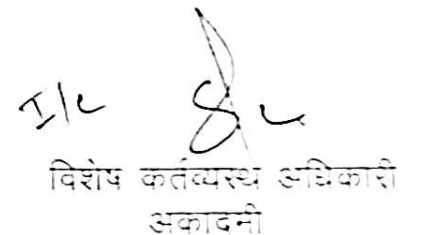 I/c
विशेष कर्तव्यस्थ अधिकारी
अकादमी